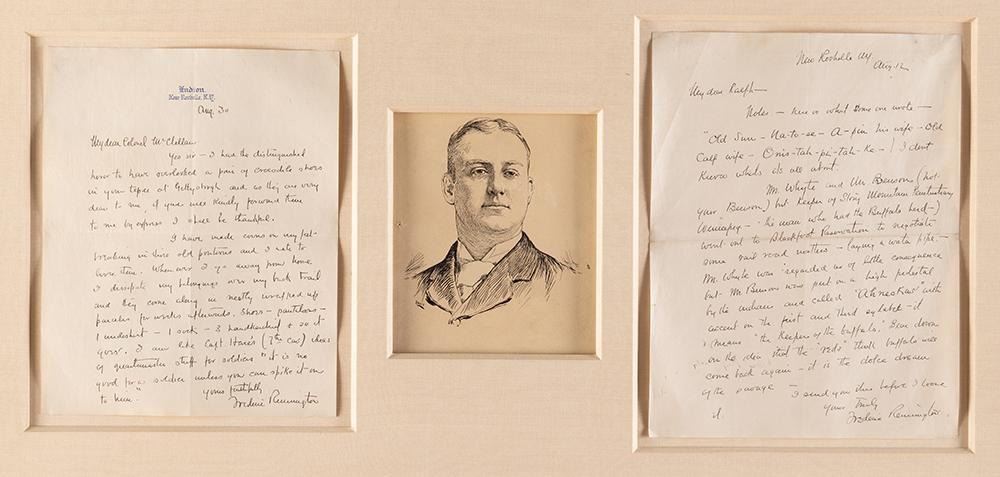 Endion.
New Rochelle, N.Y.
Aug. 30
My dear Colonel McClellan
Yes sir – I had the distinguished
honor to have overlooked a pair of crocodile shoes
in your tepee at Gettysburgh and as they are very
dear to me, if your will kindly forward them
to me by express I shall be thankful.
I have made corns on my feet
breaking in those old pontoons and I hate to
lose them. Whenever I go away from home
I dissipate my belongings over my back trail
and they come along in neatly wrapped up
parcels for weeks afterwards. Shoes – pantaloons –
1 undershirt – 1 sock – 3 handkerchief & so it
goes. I am like Capt Hares (7th Cav) ideas
of quartermaster stuff for soldiers "it is no
good for a soldier unless you can spike it on
to him."
Yours faithfully
Frederic Remington
New Rochelle NY
Aug. 12
My dear Ralph –
Notes – here is what some one wrote –
"Old Sun – Na-to-se – A-pin his wife – Old
Calf wife – Onis-tah-pi-tah-ke – I dont
know whats its all about.
Mr. Whyte and Mr Benson (not
your Benson) but Keeper of Stony Mountain Penitentiary
Winnipeg – the man who had the Buffalo herd –)
went out to Blackfoot Reservation to negotiate
some rail road matters – laying a water pipe. –
Mr. Whyte was regarded as of little consequence
but Mr Benson was put on a high pedestal
by the indians and called with
accent on the first and third sylabel – it
means "the Keeper of the buffalo." Bear down
on the idea that the "reds" think buffalo will
come back again – it is the dolce dream
of the savage – I send you this before I leave
Yours Truly
Frederic Remington